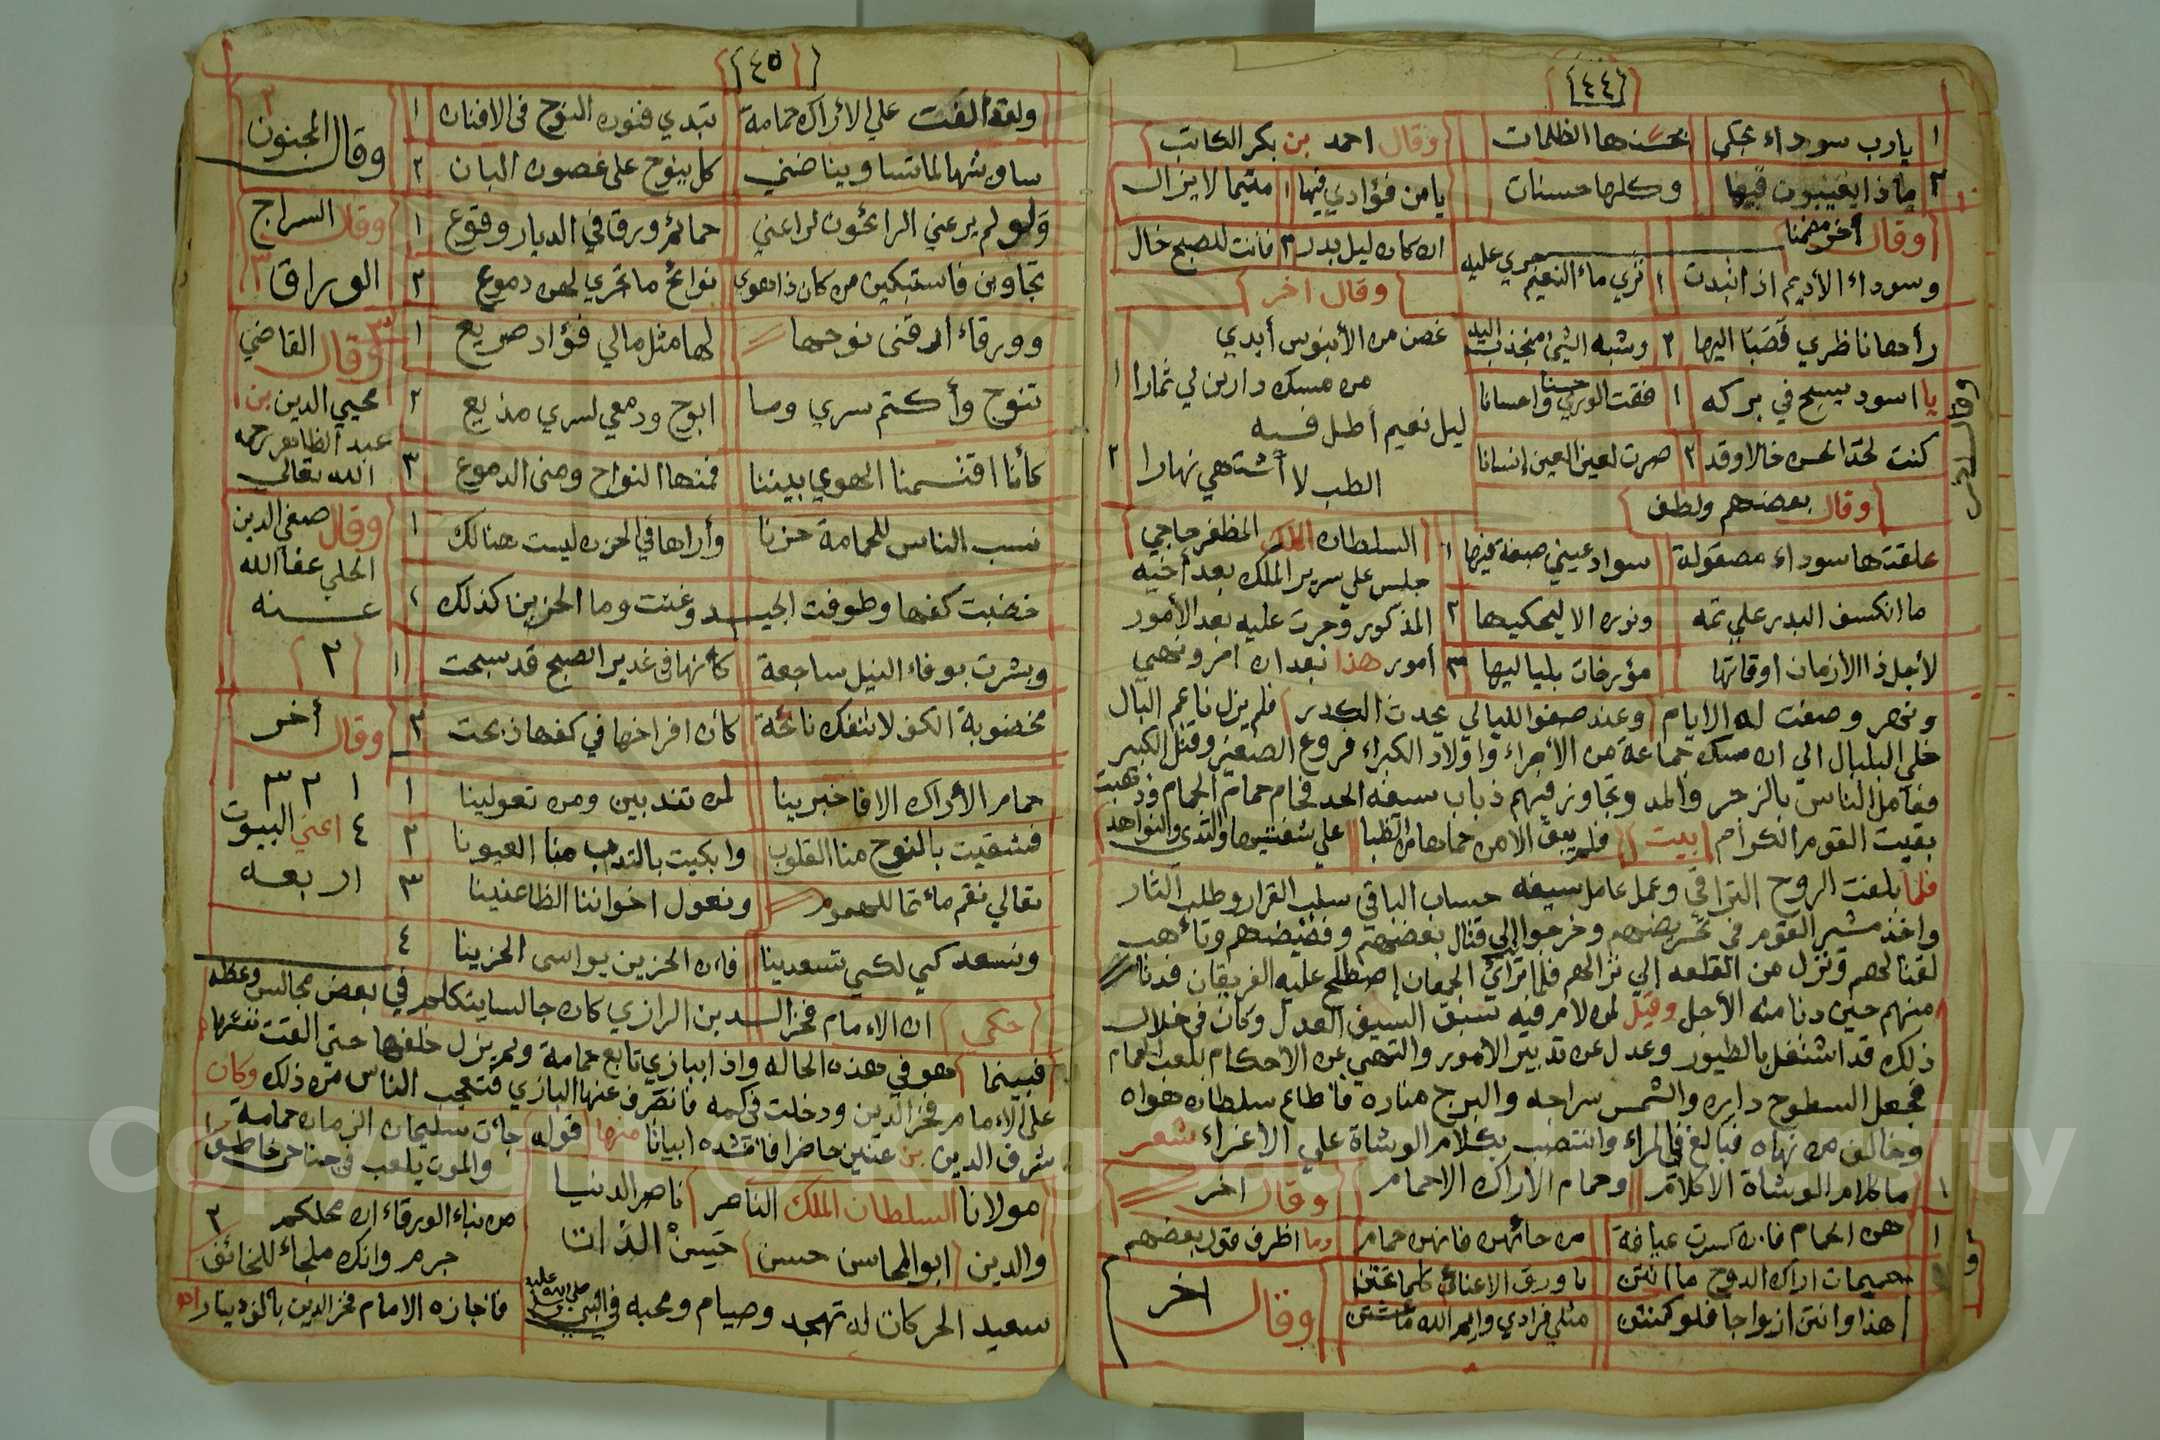 [٤٤]
١ يا رب سوداء تحكي بحسنها الظلمات
٢ ماذا يعيبون فيها وكلها حسنات
وقال احمد بن بكر الكاتب
يا من فؤادي فيها ١ متيما لا يزال
ان كان ليل بدر ٢ فانت للصبح خال
وقال أخر مضمنا
وسوداء الأديم اذ اتبدت ١ تري ماء النعيم جري عليه
رأها ناظري فصبا اليها ٢ وشبه الشئ منجذب اليه
وقال اخر
غصن من الأبنوس أبدي
من مسك دارين لي ثمارا ١
ليل نعيم أظل فيه
الطب لا أشتهي نهارا ٢
يا اسود يسبح في بركه ١ فقت الوري حسنا واحسانا
كنت لخد الحسن خالا وقد ٢ صرت لعين العين إنسانا
وقال بعضهم ولطف
علقتها سوداء مصقولة سواد عيني صبغة فيها ١
ما انكسف البدر علي تمه ونوره الا ليحكيها ٢
لأجل ذا الازمان اوقاتها مؤرخات بلياليها ٣
السلطان الملك المظفر حاجي
جلس علي سرير الملك بعد أخيه
المذكور وجرت عليه بعد الأمور
أمور هذا بعد ان امر ونهي
ونهر وصفت له الايام وعند صفو الليالي يحدث الكدر فلم يزل ناعم البال
خلي البلبال الي ان مسك جماعة من الأمراء واولاد الكبراء فروع الصغير وقتل الكبير
فعامل الناس بالزجر والمد وتجاوز فيهم ذباب سيفه الحد فحام حمام الحمام وذهبت
بقيت القوم الكرام بيت فلم يبق الا من حماها من الظبا علي شفتيها والثدي والنواهد
فلما بلغت الروح التراقي وعمل عامل سيفه حساب الباقي سلب القرار وطلب الثار
واخذ مشير القوم في تحريضهم وخرجوا إلي قتال بعضهم وتأهب
لقتالهم ونزل من القلعه إلي نزالهم فلما ترائي الجمعان إصطلح عليه الفريقان فدنا
منهم حين دنا منه الأجل وقيل لمن لام فيه سبق السيف العدل وكان في خلال
ذلك قد اشتغل بالطيور وعدل عن تدبير الامور والتهي عن الاحكام بلعب الحمام
فجعل السطوح داره والشمس سراجه والبرج مناره فاطاع سلطان هواه
وخالف من نهاه فبالغ في المراء وانتصب بكلام الوشاة علي الاغراء شعر
١ ما كلام الوشاة الا كلام وحمام الأراك الا حمام
وقال اخر
١ هن الحمام فان كسرت عيافة من حائهن فانهن حمام
وما اظرف قول بعضهم
حميمات اراك الدوح
هذا وانتن ازواجا فلو كنتن مثلي فرادي وايم الله ما عشتن
وقال اخر
[٤٥]
ولقد ألفت علي الأراك حمامة تبدي فنون النوح في الافنان ١
ساويتها لما تساوينا ضني كل ينوح على غصون البان ٢
وقال المجنون
٢
ولو لم يرعني الرائحون لراعني حمائم ورق في الديار وقوع ١
تجاوبن فاستبكين من كان ذا هوي نوائح ما تجري لهن دموع ٢
وقال السراج
الوراق ٣
وورقاء أرقني نوحها لها مثل مالي فؤاد صريع ١
تنوح وأكتم سري وما ابوح ودمعي لسري مذيع ٢
كأنا اقتسمنا الهوي بيننا فمنها النواح ومني الدموع ٣
وقال القاضي
محيي الدين بن
عبد الظاهر رحمه
الله تعالى
نسب الناس للحمامة حزنا وأراها في الحزن ليست هنالك ١
خضبت كفها وطوقت الجيد وغنت وما الحزين كذلك ٢
وقال صفي الدين
الحلي عفا الله
عنه
٢
وبشرت بوفاء النيل ساجعة كأنها في غدير الصبح قد سبحت ١
مخضوبة الكف لا تنفك نائحة كأن افراخها في كفها ذبحت ٢
وقال أخر
حمام الأراك الا فاخبرينا لمن تندبين ومن تعولينا ١
فشققت بالنوح منا القلوب وابكيت بالندب منا العيونا ٢
تعالي نقم مأتما للهموم ونعول اخواننا الظاعنينا ٣
ونسعدكي لكي تسعدينا فان الحزين يواسي الحزينا ٤
١ ٢ ٣
٤ اعني البيوت
اربعه
حكي ان الامام فخر الدين الرازي كان جالسا يتكلم في بعض مجالس وعظه
فبينما هو في هذه الحاله واذ ببازي تابع حمامة ولم يزل خلفها حتي القت نفسها
على الامام فخر الدين ودخلت في كمه فانصرف عنها البازي فتعجب الناس من ذلك وكان
شرف الدين بن عنين حاضرا فانشده ابياتا منها قوله جائت سليمان الزمان حمامة
والموت يلعب في جناحي خاطف ١
مولانا السلطان الملك الناصر ناصر الدنيا
من نباء الورقاء ان محلكم ٢
والدين ابو المحاسن حسن حَسَنْ الذات
حرم وانك ملجاء للخائف
سعيد الحركات له تهجد وصيام ومحبه في النبي صلى الله عليه وسلم
فاجازه الامام فخر الدين بالف دينار اهـ